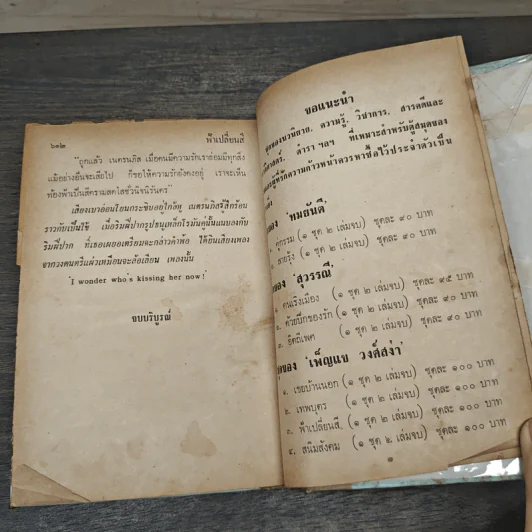 ๖๑๒
ฟ้าเปลี่ยนสี
"ถูกแล้ว เนตรนภิส เมื่อคนมีความรักเราย่อมมีทุกสิ่ง
แม้อย่างอื่นจะเสียไป ก็ขอให้ความรักยังคงอยู่ เราจะเห็น
ท้องฟ้าเป็นสีครามสดใสชั่วนิจนิรันดร"
เสียงเบาอ่อนโยนกระซิบอยู่ใกล้หู เนตรนภิสรู้สึกร้อน
ริมฝีปาก ที่เธอเผยอเตรียมจะกล่าวคำพ้อ ได้ยินเสียงเพลง
จากวงดนตรีแผ่วเหมือนจะล้อเลียน เพลงนั้น
'I wonder who's kissing her now!'
จบบริบูรณ์
ขอแนะนำ
ชุดของนวนิยาย, ความรู้, วิชาการ, สารคดีและ
ตำรา ฯลฯ ที่เหมาะสำหรับตู้สมุดของ
ผู้ที่รักความก้าวหน้าควรหาซื้อไว้ประจำตัวเป็น
ของ 'ทมยันตี'
คู่กรรม (๑ ชุด ๒ เล่มจบ) ชุดละ ๙๐ บาท
สายรุ้ง (๑ ชุด ๒ เล่มจบ) ชุดละ ๙๐ บาท
ของ 'สุวรรณี'
คนเริงเมือง (๑ ชุด ๒ เล่มจบ) ชุดละ ๙๕ บาท
๒. ด้วยปีกของรัก (๑ ชุด ๒ เล่มจบ) ชุดละ ๙๐ บาท
๓. อิตถีเพศ (๑ ชุด ๒ เล่มจบ) ชุดละ ๙๐ บาท
ชุดของ 'เพ็ญแข วงศ์สง่า'
๑. เขยบ้านนอก (๑ ชุด ๒ เล่มจบ) ชุดละ ๑๐๐ บาท
๒. เทพบุตร (๑ ชุด ๒ เล่มจบ) ชุดละ ๑๐๐ บาท
๓. ฟ้าเปลี่ยนสี (๑ ชุด ๒ เล่มจบ) ชุดละ ๑๐๐ บาท
๔. สนิมสังคม (๑ ชุด ๒ เล่มจบ) ชุดละ ๑๐๐ บาท